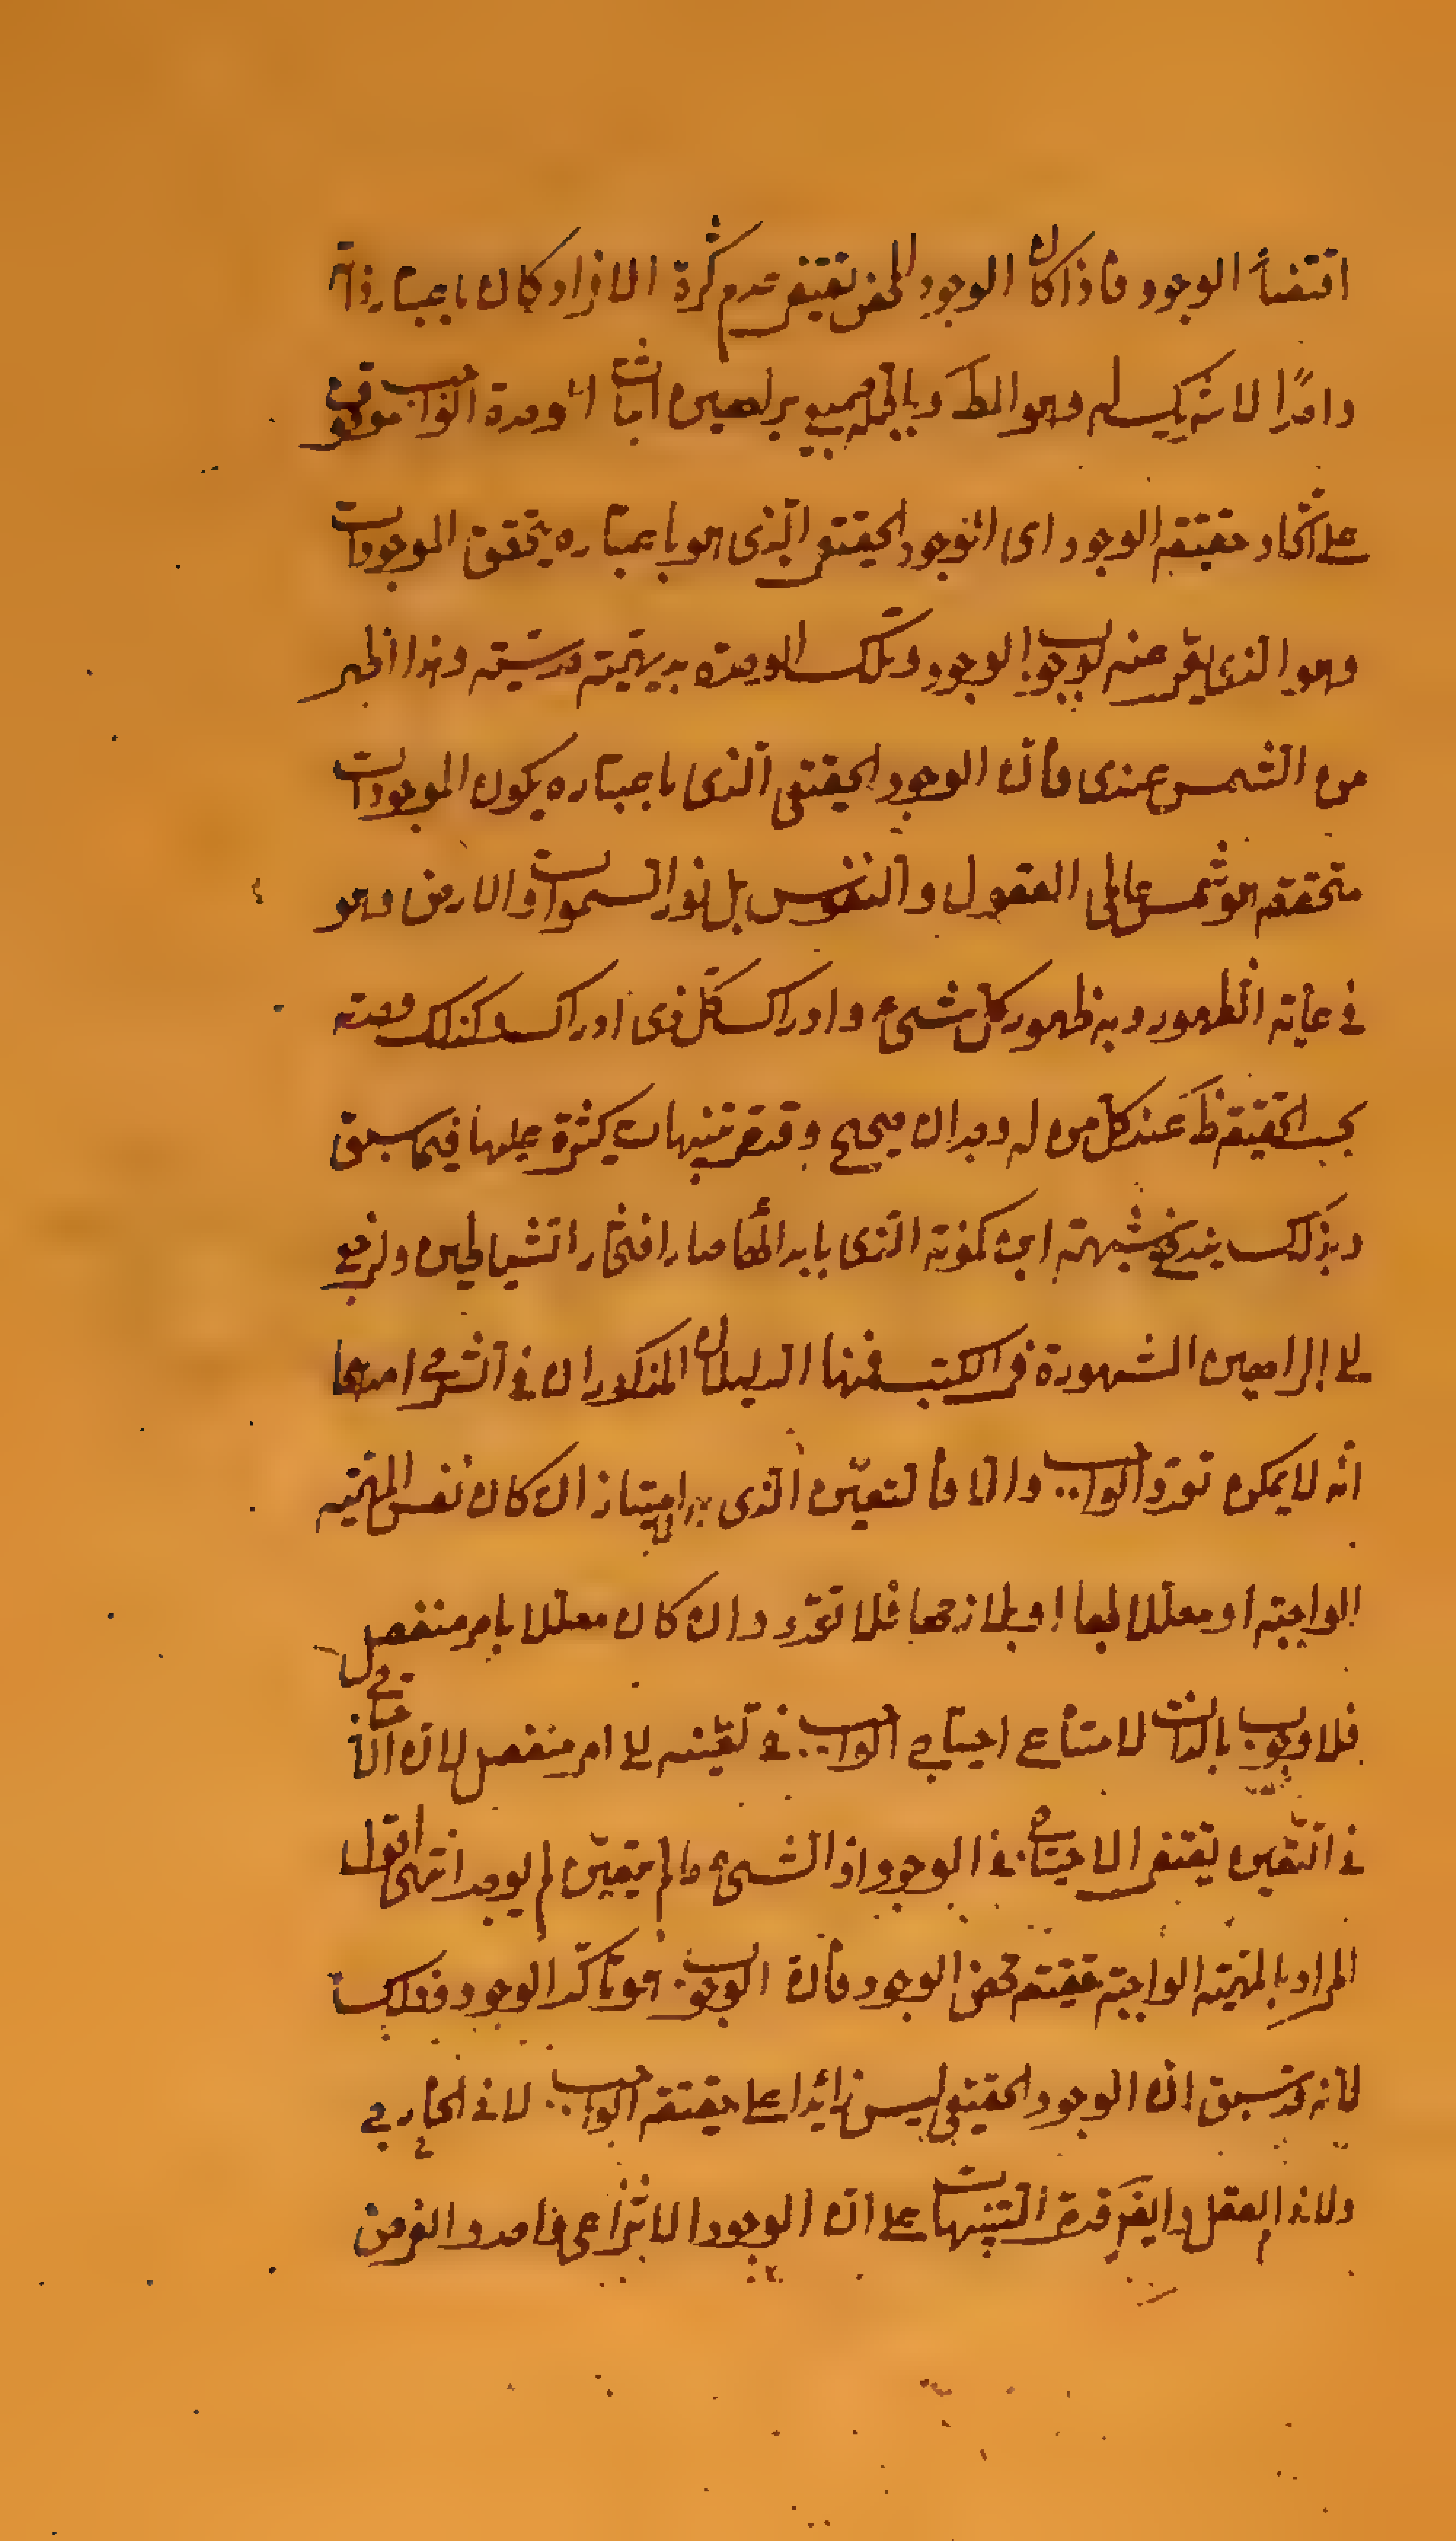 اقتضاء الوجود فاذا كان الوجود المحض يقتضى عدم كثرة الافراد كان باعتبار ذاته
واحدا لا شريك له وهو المط وبالجملة جميع براهين اثبات الوحدة الواجب موقوف
على اتحاد حقيقة الوجود اى الوجود الحقيقى الذى هو باعتباره يتحقق الموجودات
وهو الذى يعبر عنه بوجوب الوجود وتلك الوحدة بديهية حدسية وهذا اظهر
من الشمس عندى فان الوجود الحقيقى الذى باعتباره يكون الموجودات
متحققة هو شمس عالمى العقول والنفوس بل نور السموات والارض وهو
فى غاية الظهور وبه ظهور كل شىء وادراك كل ذى ادراك وكذلك وحدته
بحسب الحقيقة ظ عند كل من له وجدان صحيح وقد مر تنبيهات كثيرة عليها فيما سبق
وبذلك يندفع شبهة ابن كمونة الذى بابدائها صار افتخار الشياطين ولنرجع
الى البراهين المشهورة فى الكتب فمنها الدليلان المذكوران فى الشرح احدهما
انه لا يمكن تعدد الواجب والا فالتعين الذى به الامتياز ان كان نفس المهية
الواجبة او معللا بها او بلازمها فلا تعدد وان كان معللا بامر منفصل
فلا وجوب بالذات لامتناع احتياج الواجب فى تعينه الى امر منفصل لان الاحتياج
فى التعين يقتضى الاحتياج فى الوجود اذ الشىء ما لم يتعين لم يوجد انتهى اقول
المراد بالمهية الواجبة حقيقة محض الوجود فان الوجوب هو تاكد الوجود
لانه قد سبق ان الوجود الحقيقى ليس زائدا على حقيقة الواجب لا فى الخارج
ولا فى العقل وايض قد مر التنبيهات على ان الوجود الانتزاعى